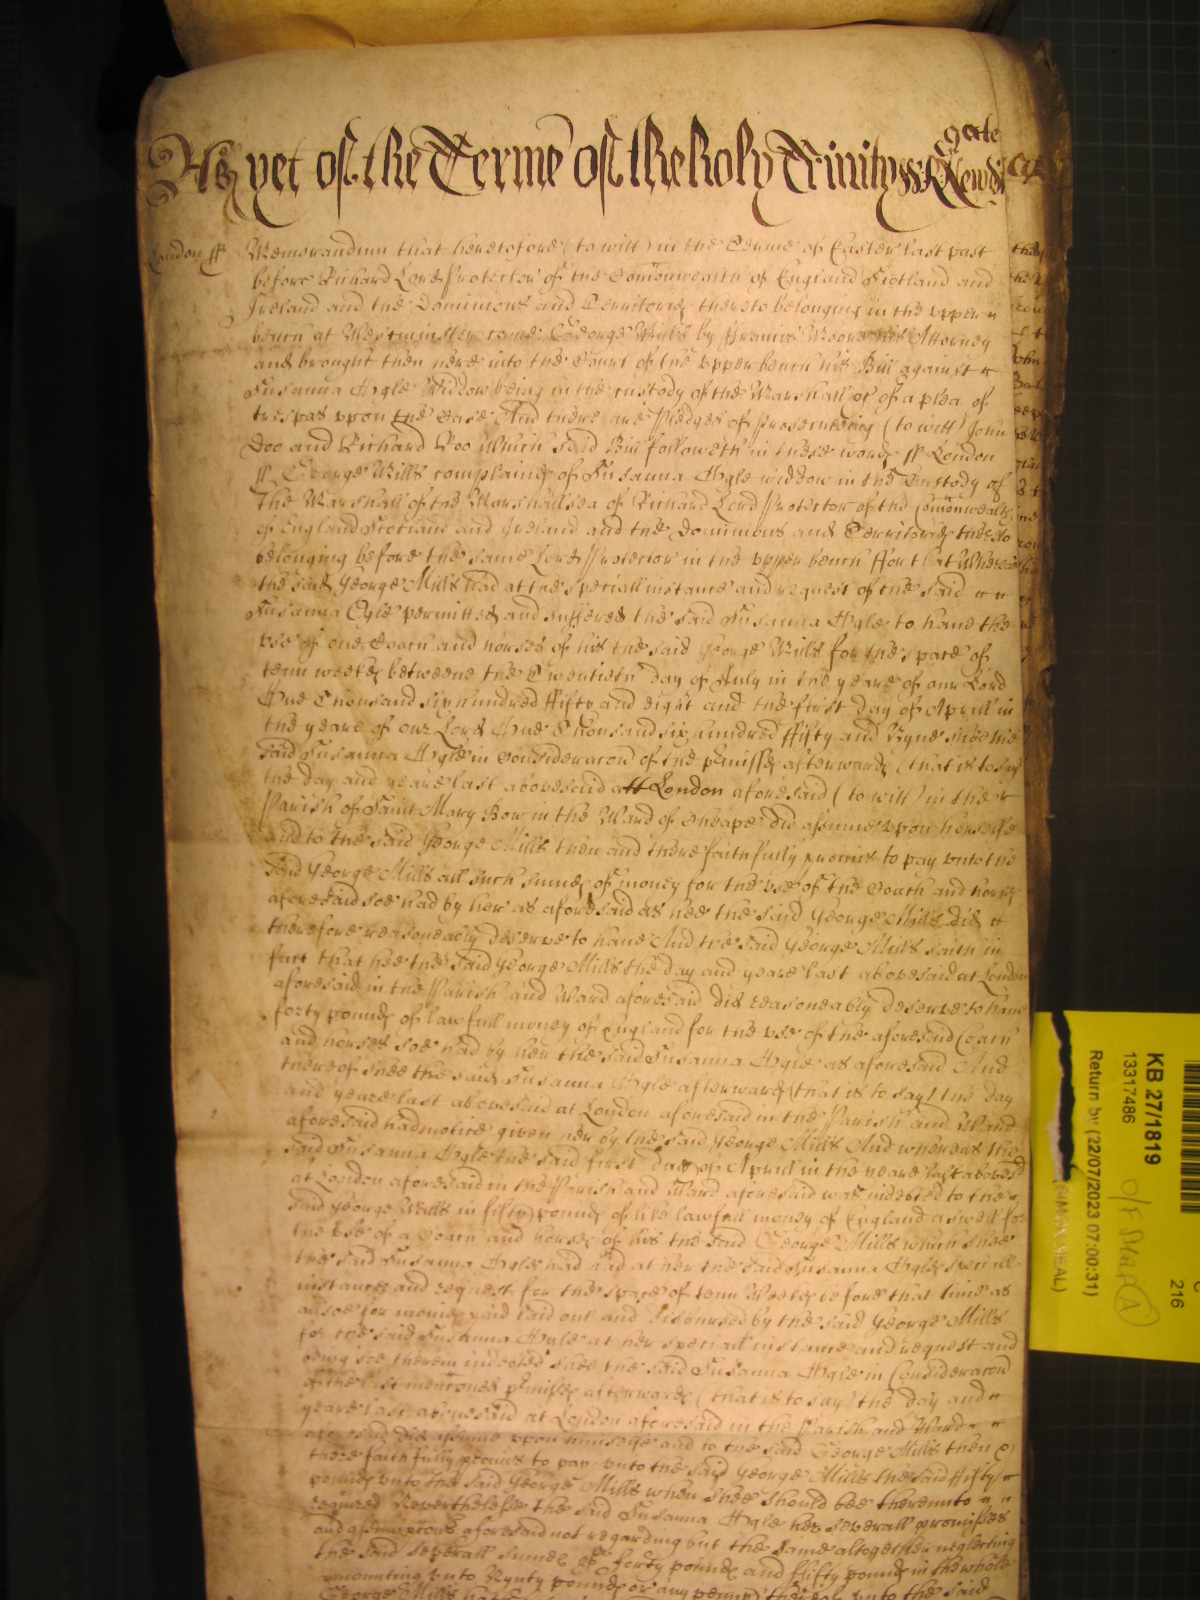 As yet of the Terme of the holy Trinity Newdigate
London ss Memorandum that heretofore (to witt) in the Terme of Easter last past
before Richard Lord Protector of the Comonwealth of England Scotland and
Ireland and the Dominions and Territories thereto belonging in the upper
bench at Westminster came George Mills by Francis Moore his Attorney
and brought then here into the Court of the upper bench his Bill against
Susanna Ogle Widdow being in the custody of the Marshall &c of a plea of
trespas upon the Case And there are Pledges of Prosecuteing (to witt) John
Doo and Richard Roo Which said Bill followeth in these words ss London
ss George Mills complaines of Susanna Ogle widdow in the Custody of
The Marshall of the Marshallsea of Richard Lord Protector of the Comonwealth
of England Scotland and Ireland and the Dominions and Territories thereto
belonging before the same Lord Protector in the upper bench ffor that Whereas
the said George Mills had at the speciall instance and request of the said
Susanna Ogle permitted and suffered the said Susanna Ogle to haue the
vse of one Coach and horses of his the said George Mills for the space of
tenn weekes betweene the Twentieth day of July in the yeare of our Lord
One Thousand six hundred ffifty and eight and the first day of Aprill in
the yeare of our Lord One Thousand six hundred ffifty and Nyne shee the
said Susanna Ogle in Consideracon of the pmisses afterwards (that is to say)
the day and yeare last abovesaid att London aforesaid (to witt) in the
Parish of Saint Mary Bow in the Ward of Cheape did assume vpon herselfe
and to the said George Mills then and there faithfully promis to pay vnto the
said George Mills all such sumes of money for the vse of the Coach and horses
aforesaid soe had by her as aforesaid as hee the said George Mills did
therefore reasoneably deserve to haue And the said George Mills saith in
fact that hee the said George Mills the day and yeare last abovesaid at London
aforesaid in the Parish and Ward aforesaid did reasoneably deserve to haue
forty pounds of lawfull money of England for the vse of the aforesaid Coach
and horses soe had by her the said Susanna Ogle as aforesaid And
thereof shee the said Susanna Ogle afterwards (that is to say) the day
and yeare last abovesaid at London aforesaid in the Parish and Ward
aforesaid had notice given her by the said George Mills And whereas the
said Susanna Ogle the said first day of Aprill in the yeare last abovesd
at London aforesaid in the Parish and Ward aforesaid was indebted to the
said George Mills in fifty pounds of like lawfull money of England aswell for
the vse of a Coach and horses of his the said George Mills which shee
the said Susanna Ogle had had at her the said Susanna Ogles speciall
instance and request for the space of tenn Weekes before that time as
alsoe for monies paid laid out and disbursed by the said George Mills
for the said Susanna Ogle at her speciall instance and request and
being soe therein indebted shee the said Susanna Ogle in Consideracon
of the last mentoned pmisses afterwards (that is to say) the day and
yeare last abovesaid at London aforesaid in the Parish and Ward
aforesaid did assume vpon himselfe and to the said George Mills then &
there faithfully promis to pay vnto the said George Mills the said ffifty
pounds vnto the said George Mills when shee should bee therevnto
required Neverthelesse the said Susanna Ogle her severall promisses
and assumptions aforesaid not regarding but the same altogether neglecting
the said severall sumes of forty pounds and ffifty pounds in the whole
amounting vnto Nynty pounds or any penny thereof vnto the said
George Mills
KB 27/1819
13317486
Return by (22/07/2023 07:00:31)
216